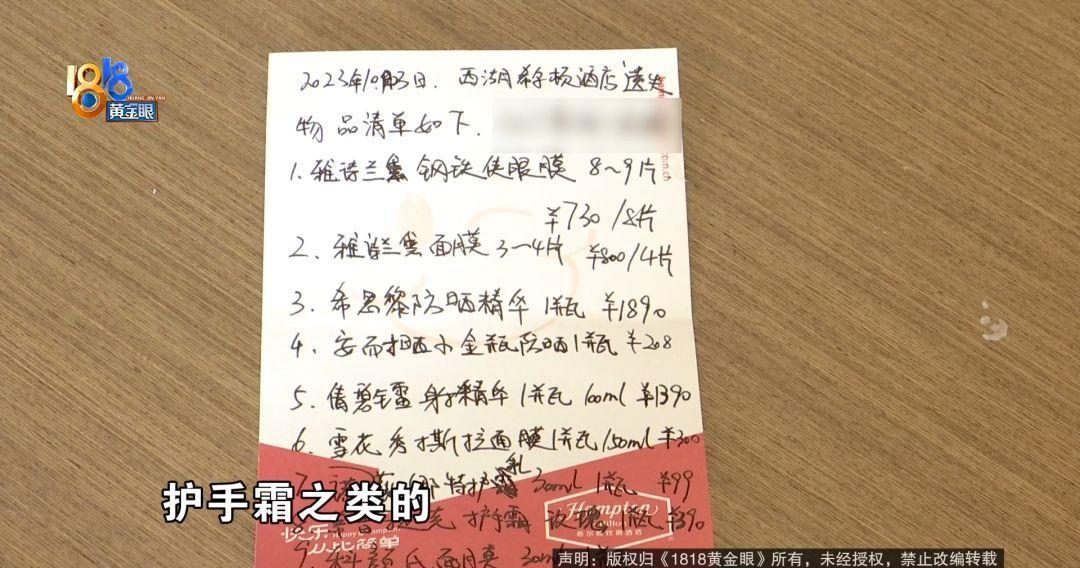 1818
HUANG JIN YAN
黄金眼
2023年10月3日. 西湖希尔顿酒店遗失
物品清单如下.
1. 雅诗兰黛 钢铁侠眼膜 8~9片
¥730/8片
2. 雅诗兰黛面膜 3~4片 ¥800/4片
3. 希思黎防晒精华 1瓶 ¥1890
4. 安而晒小金瓶防晒1瓶 ¥208
5. 倩碧镭射精华 1瓶 100ml ¥1390
6. 雪花秀撕拉面膜1瓶 150ml ¥300
7. 特护乳 30ml 1瓶 ¥99
护手霜 玫瑰 1瓶 ¥390
9. 科颜氏面膜 30ml
护手霜之类的
快乐
从此简单
Hampton
by Hilton
希尔顿欢朋酒店
声明：版权归《1818黄金眼》所有，未经授权，禁止改编转载